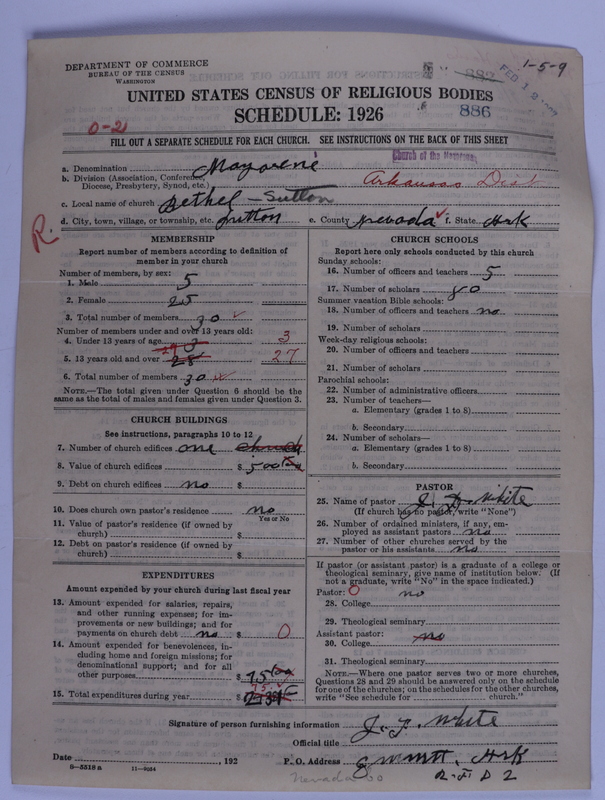 DEPARTMENT OF COMMERCE
BUREAU OF THE CENSUS
WASHINGTON
1-5-9
882
FEB 1 2 1927
UNITED STATES CENSUS OF RELIGIOUS BODIES
SCHEDULE: 1926
886
0-2
FILL OUT A SEPARATE SCHEDULE FOR EACH CHURCH. SEE INSTRUCTIONS ON THE BACK OF THIS SHEET
Church of the Nazarene
a. Denomination Nazarene
b. Division (Association, Conference, Diocese, Presbytery, Synod, etc.) Arkansas Dist
c. Local name of church Bethel - Sutton
d. City, town, village, or township, etc. Sutton e. County Nevada ✓ f. State Ark
R.
MEMBERSHIP
Report number of members according to definition of
member in your church
Number of members, by sex:
1. Male 5
2. Female 25
3. Total number of members 30 ✓
Number of members under and over 13 years old:
4. Under 13 years of age 3 3
5. 13 years old and over 28 27
6. Total number of members 30
NOTE.—The total given under Question 6 should be
same as the total of males and females given under Question 3.
CHURCH BUILDINGS
See instructions, paragraphs 10 to 12
7. Number of church edifices one church
8. Value of church edifices $ 500
9. Debt on church edifices no $
10. Does church own pastor's residence? no
Yes or No
11. Value of pastor's residence (if owned by
church) $
12. Debt on pastor's residence (if owned by
church) $
EXPENDITURES
Amount expended by your church during last fiscal year
13. Amount expended for salaries, repairs,
and other running expenses; for im-
provements or new buildings; and for
payments on church debt no $ 0
14. Amount expended for benevolences, in-
cluding home and foreign missions; for
denominational support; and for all
other purposes $ 75
15. Total expenditures during year $ 75
CHURCH SCHOOLS
Report here only schools conducted by this church
Sunday schools:
16. Number of officers and teachers 5
17. Number of scholars 80
Summer vacation Bible schools:
18. Number of officers and teachers no
19. Number of scholars
Week-day religious schools:
20. Number of officers and teachers
21. Number of scholars
Parochial schools:
22. Number of administrative officers
23. Number of teachers—
a. Elementary (grades 1 to 8)
b. Secondary
24. Number of scholars—
a. Elementary (grades 1 to 8)
b. Secondary
PASTOR
25. Name of pastor White
(If church has no pastor, write "None")
26. Number of ordained ministers, if any, em-
ployed as assistant pastors no
27. Number of other churches served by the
pastor or his assistants no
If pastor (or assistant pastor) is a graduate of a college or
theological seminary, give name of institution below. (If
not a graduate, write "No" in the space indicated.)
Pastor: 0 no
28. College
29. Theological seminary
Assistant pastor: no
30. College
31. Theological seminary
NOTE.—Where one pastor serves two or more churches,
Questions 28 and 29 should be answered only on the schedule
for one of the churches; on the schedules for the other churches,
write "See schedule for church."
Signature of person furnishing information White
Official title
Date , 192 P. O. Address Emmett, Ark
R F D 2
8-5518 a 11-9054
Nevada Co